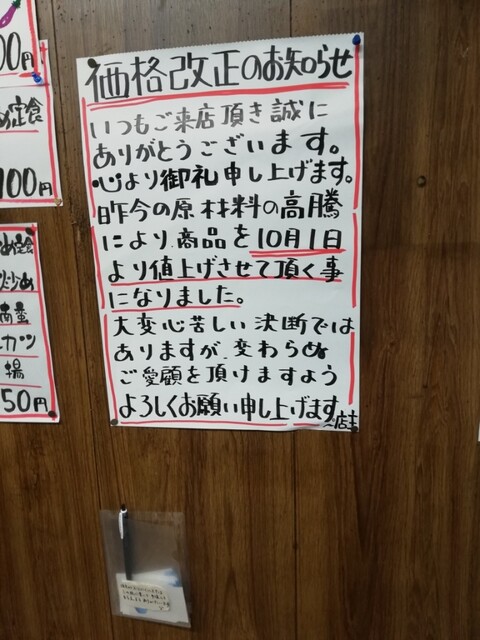 価格改正のお知らせ
いつもご来店頂き誠に
ありがとうございます。
心より御礼申し上げます。
昨今の原材料の高騰
により商品を10月1日
より値上げさせて頂く事
になりました。
大変心苦しい決断では
ありますが、変わらぬ
ご愛顧を頂けますよう
よろしくお願い申し上げます
店主
00円
定食
100円
定食
カツ
揚
50円